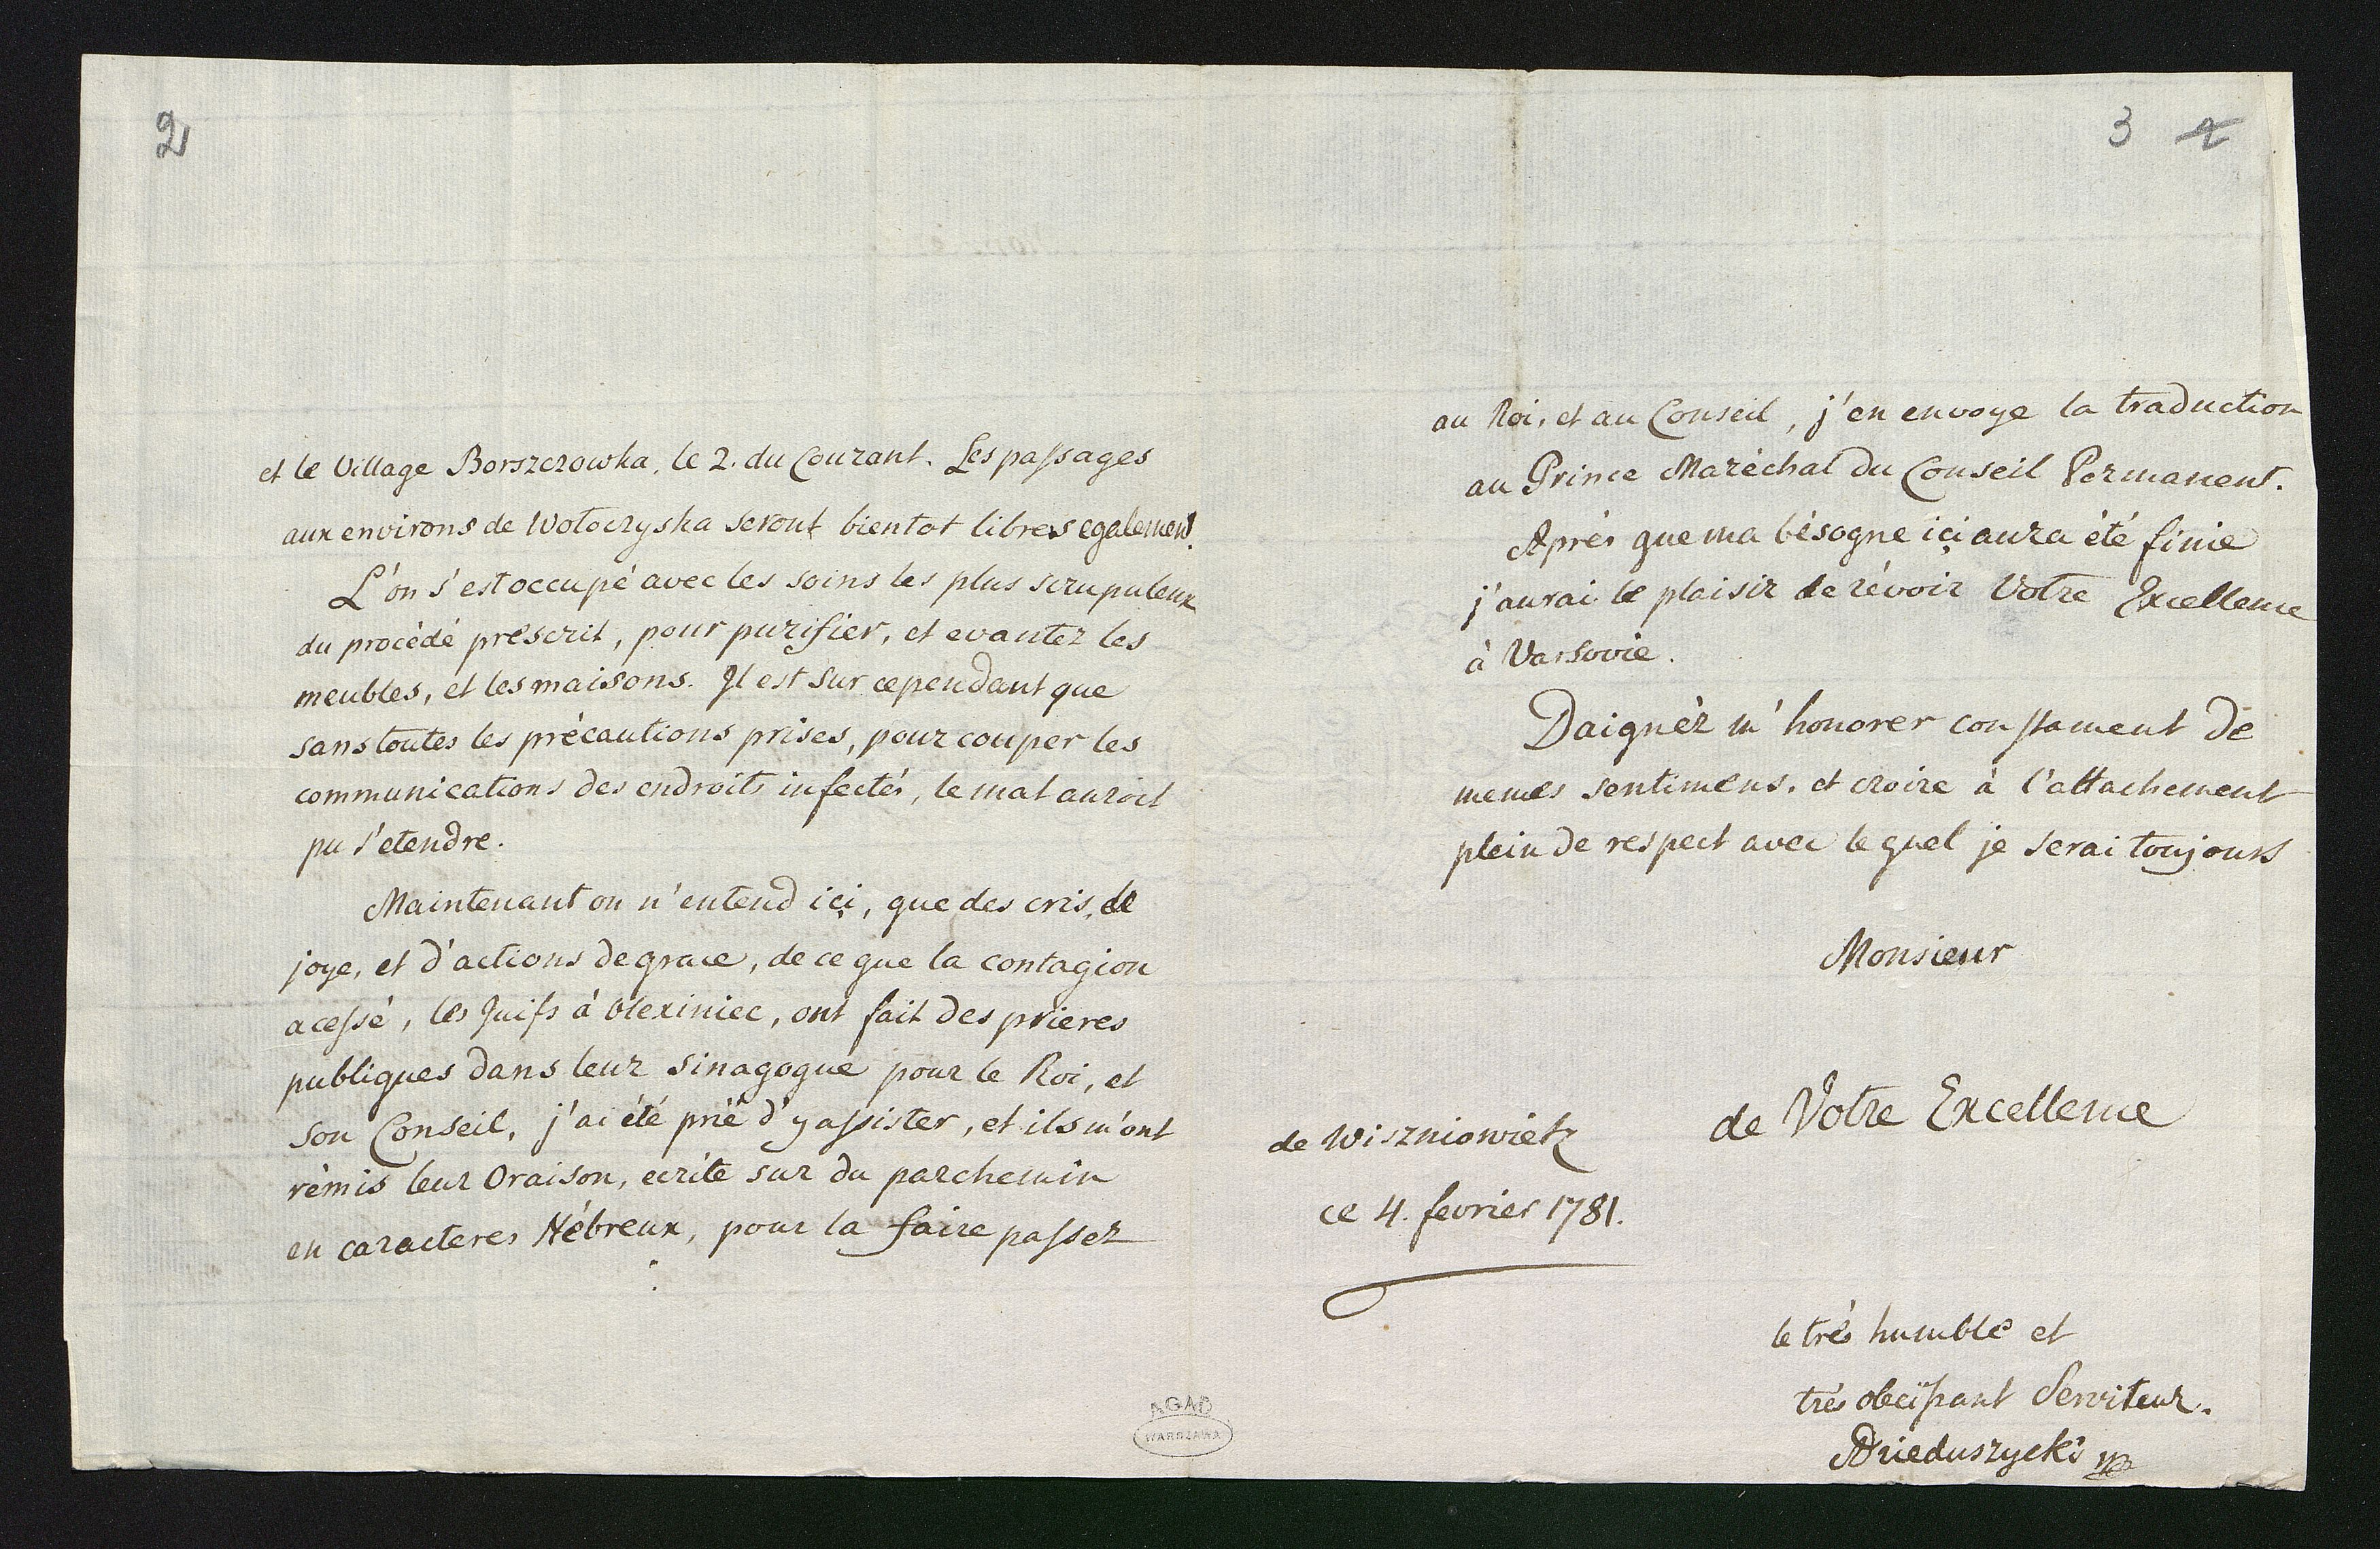 2
et le Village Borszczowka, le 2. du Courant. Les passages
aux environs de Wołoczyska seront bientot libres egalement.
L'on s'est occupé avec les soins les plus scrupuleux
du procédé préscrit, pour purifier, et evanter les
meubles, et les maisons. Il est sur cependant que
sans toutes les précautions prises, pour couper les
communications des endroits infectés, le mal auroit
pu s'etendre.
Maintenant on n'entend içi, que des cris, de
joye, et d'actions de grace, de ce que la contagion
a cessé, les Juifs à Olexiniec, ont fait des prieres
publiques dans leur sinagogue pour le Roi, et
son Conseil, j'ai été prié d'y assister, et ils m'ont
rémis leur Oraison, ecrite sur du parchemin
en caracteres Hébreux, pour la faire passer
3 2
au Roi, et au Conseil, j'en envoye la traduction
au Prince Maréchal du Conseil Permanent.
Aprés que ma bésogne içi aura été finie
j'aurai le plaisir de révoir Votre Excellence
à Varsovie.
Daignéz m'honorer constament de
memes sentimens, et croire à l'attachement
plein de respect avec le quel je serai toujours
Monsieur
de Votre Excellence
de Wiszniowietz
ce 4. fevrier 1781.
le trés humble et
trés obeissant Serviteur.
Dzieduszycki mp
AGAD
WARSZAWA